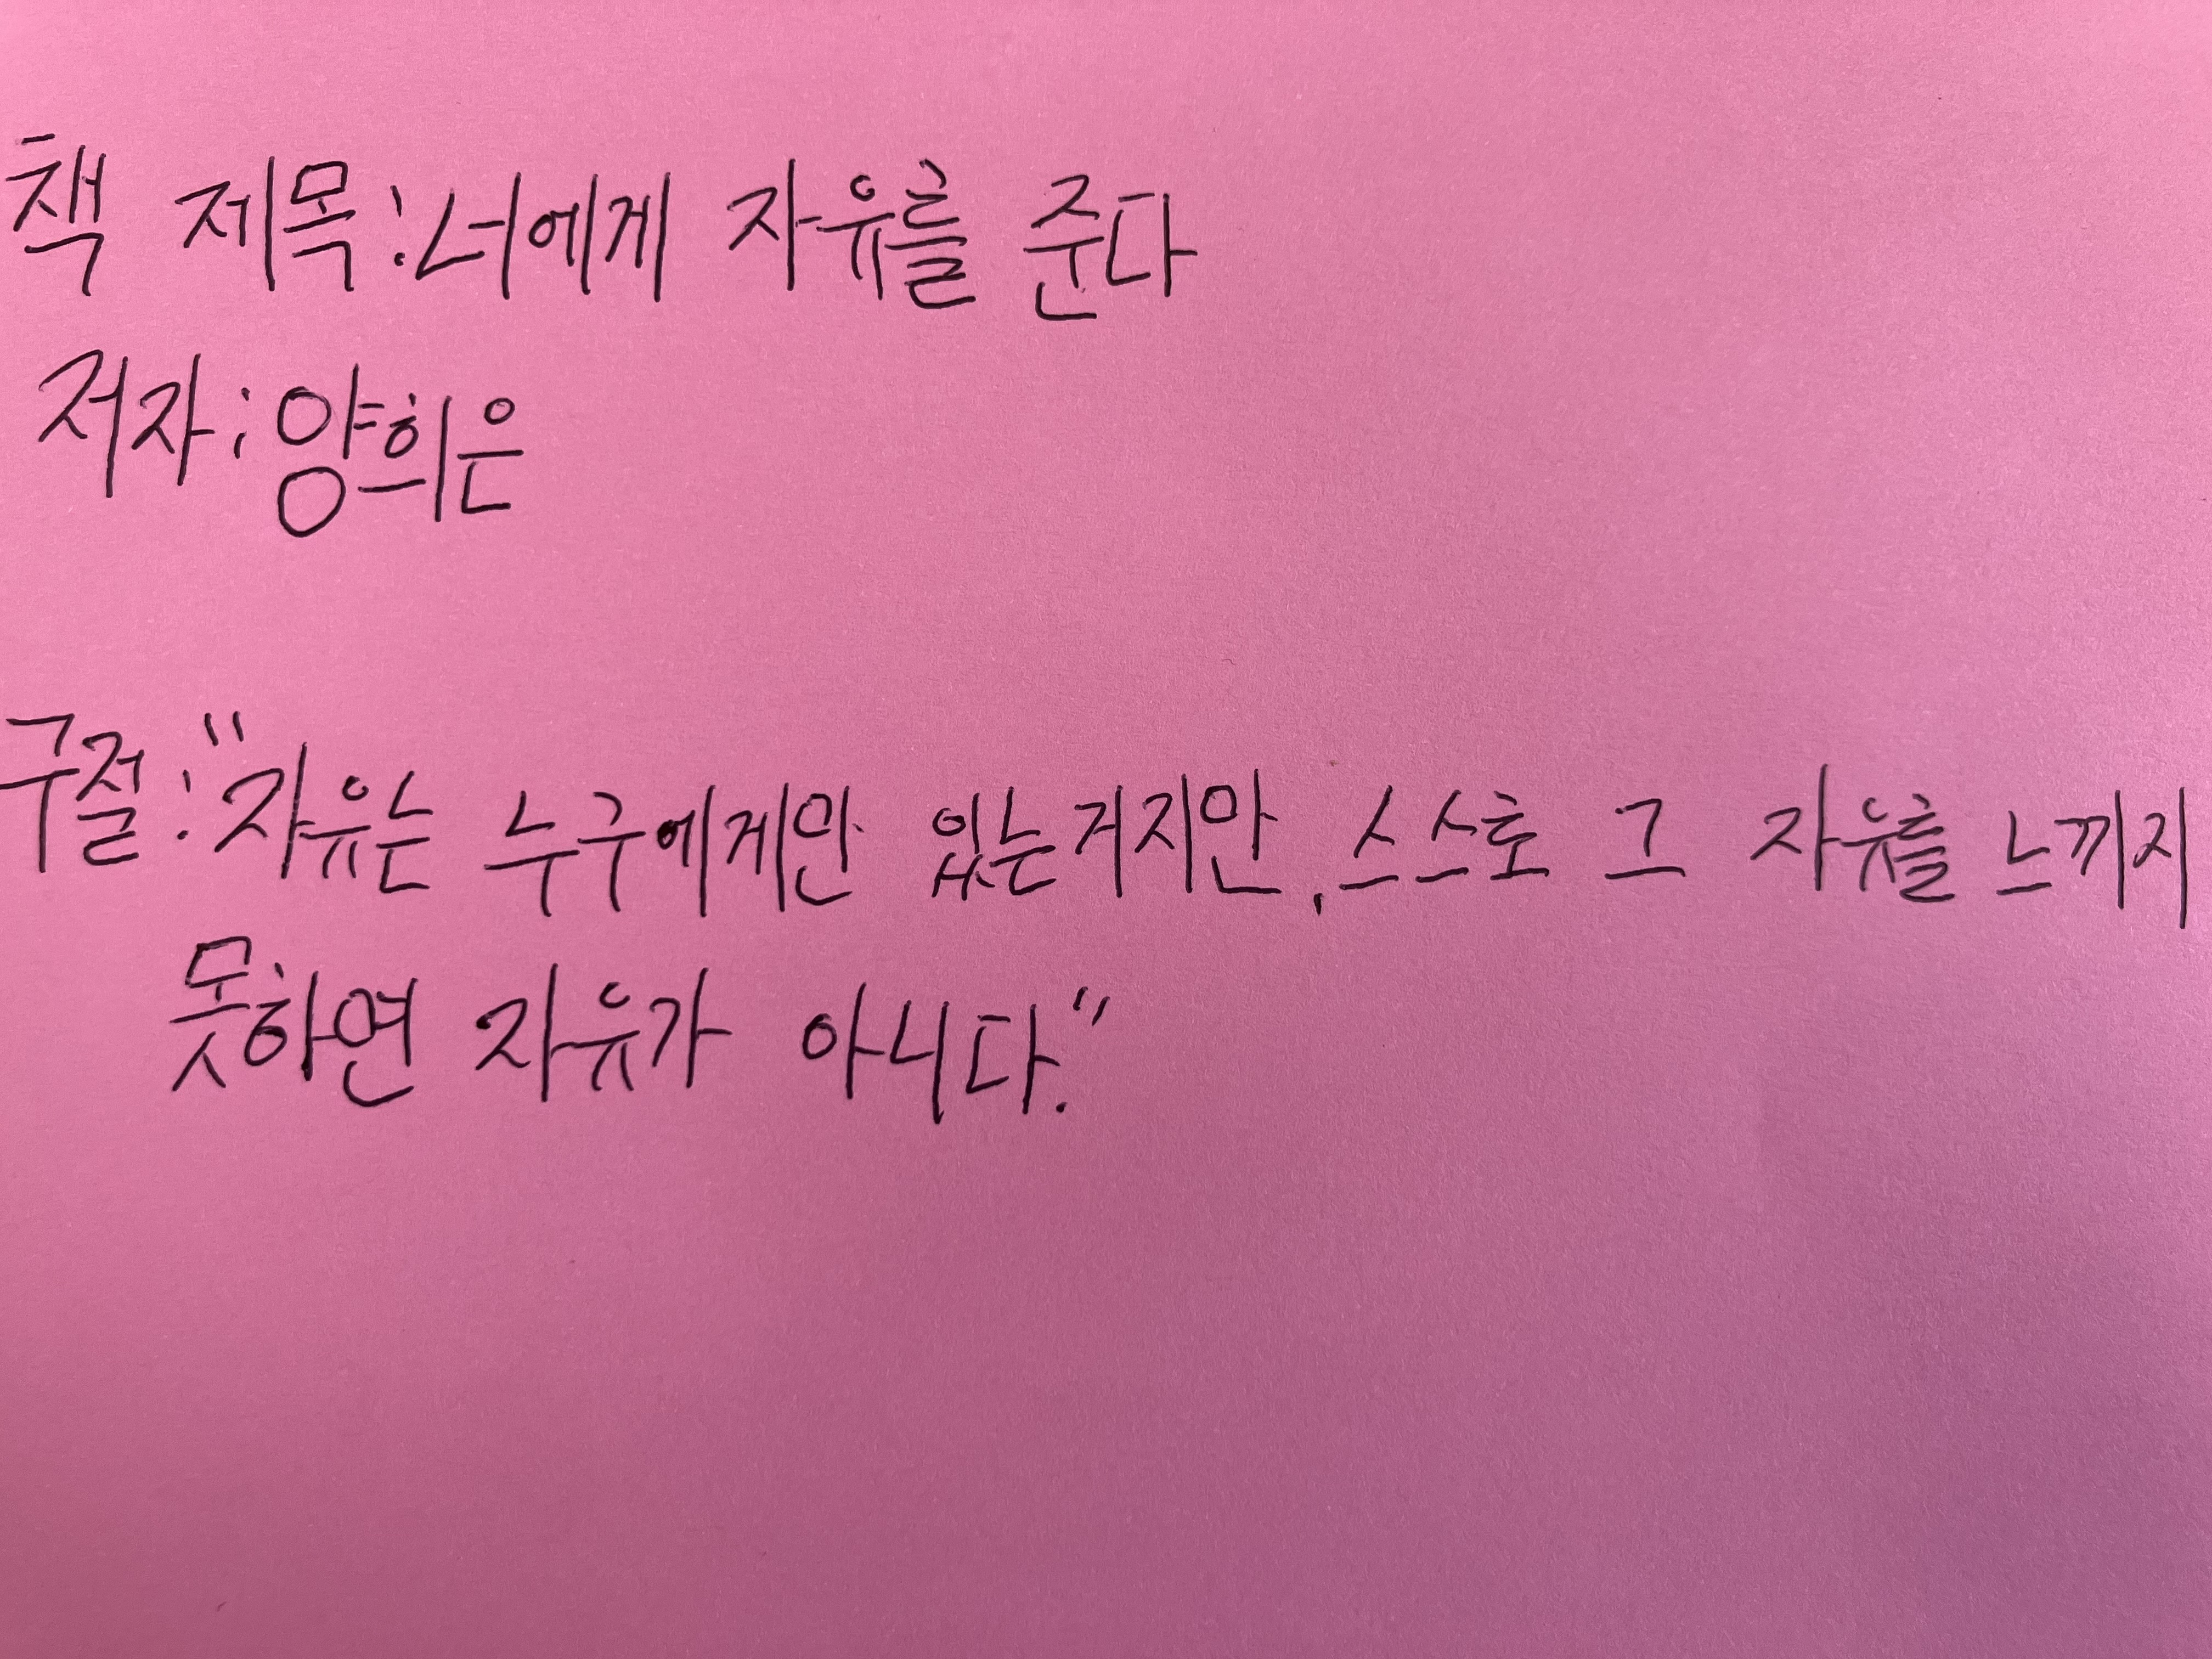 책 제목:너에게 자유를 준다
저자:양희은
구절:"자유는 누구에게만 있는거지만, 스스로 그 자유를 느끼지
못하면 자유가 아니다."